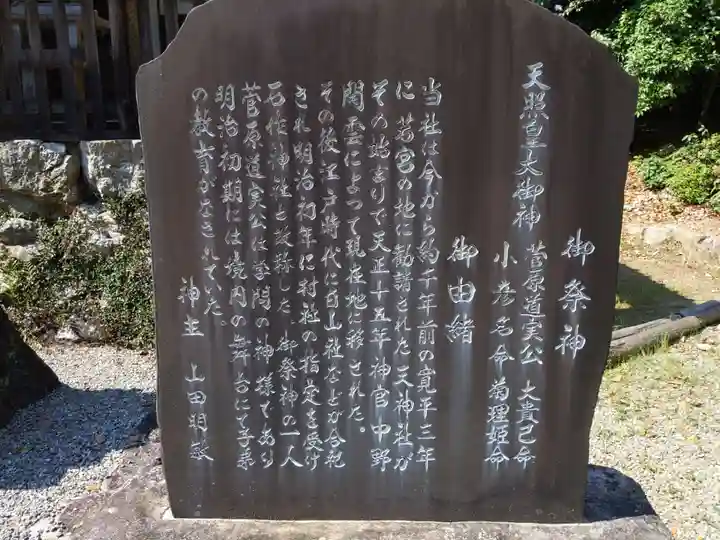 御祭神
天照皇大御神 菅原道実公 大貴己命
小彦名命 菊理姫命
御由緒
当社は今から約千年前の寛平三年
に若宮の地に勧請された天神社が
その始まりで天正十五年神官中野
閑雲によって現在地に移された。
その後江戸時代に白山社などが合祀
され明治初年に村社の指定を受け
石作神社と改称した 御祭神の一人
菅原道実公は学問の神様であり
明治初期には境内の舞台にて子弟
の教育がなされていた。
神主 山田明